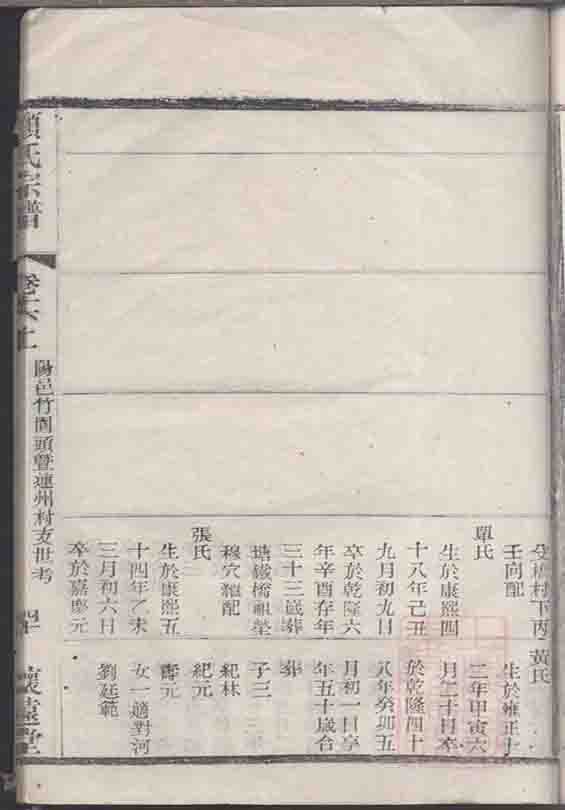 殳橋村下丙
壬向配
單氏
生於康熙四
十八年己丑
九月初九日
卒於乾隆六
年辛酉存年
三十三歲葬
塘鐵橋祖塋
穆穴龍配
張氏
生於康熙五
十四年乙未
三月初六日
卒於嘉慶元
黃氏
生於雍正十
二年甲寅六
月二十日卒
於乾隆四十
八年癸卯五
月初一日享
年五十歲合
葬
子三
紀林
紀元
壽元
女一適對河
劉廷範
顧氏宗譜
卷十六上
陽邑竹園頭暨蓮州村支世考
懷遠堂